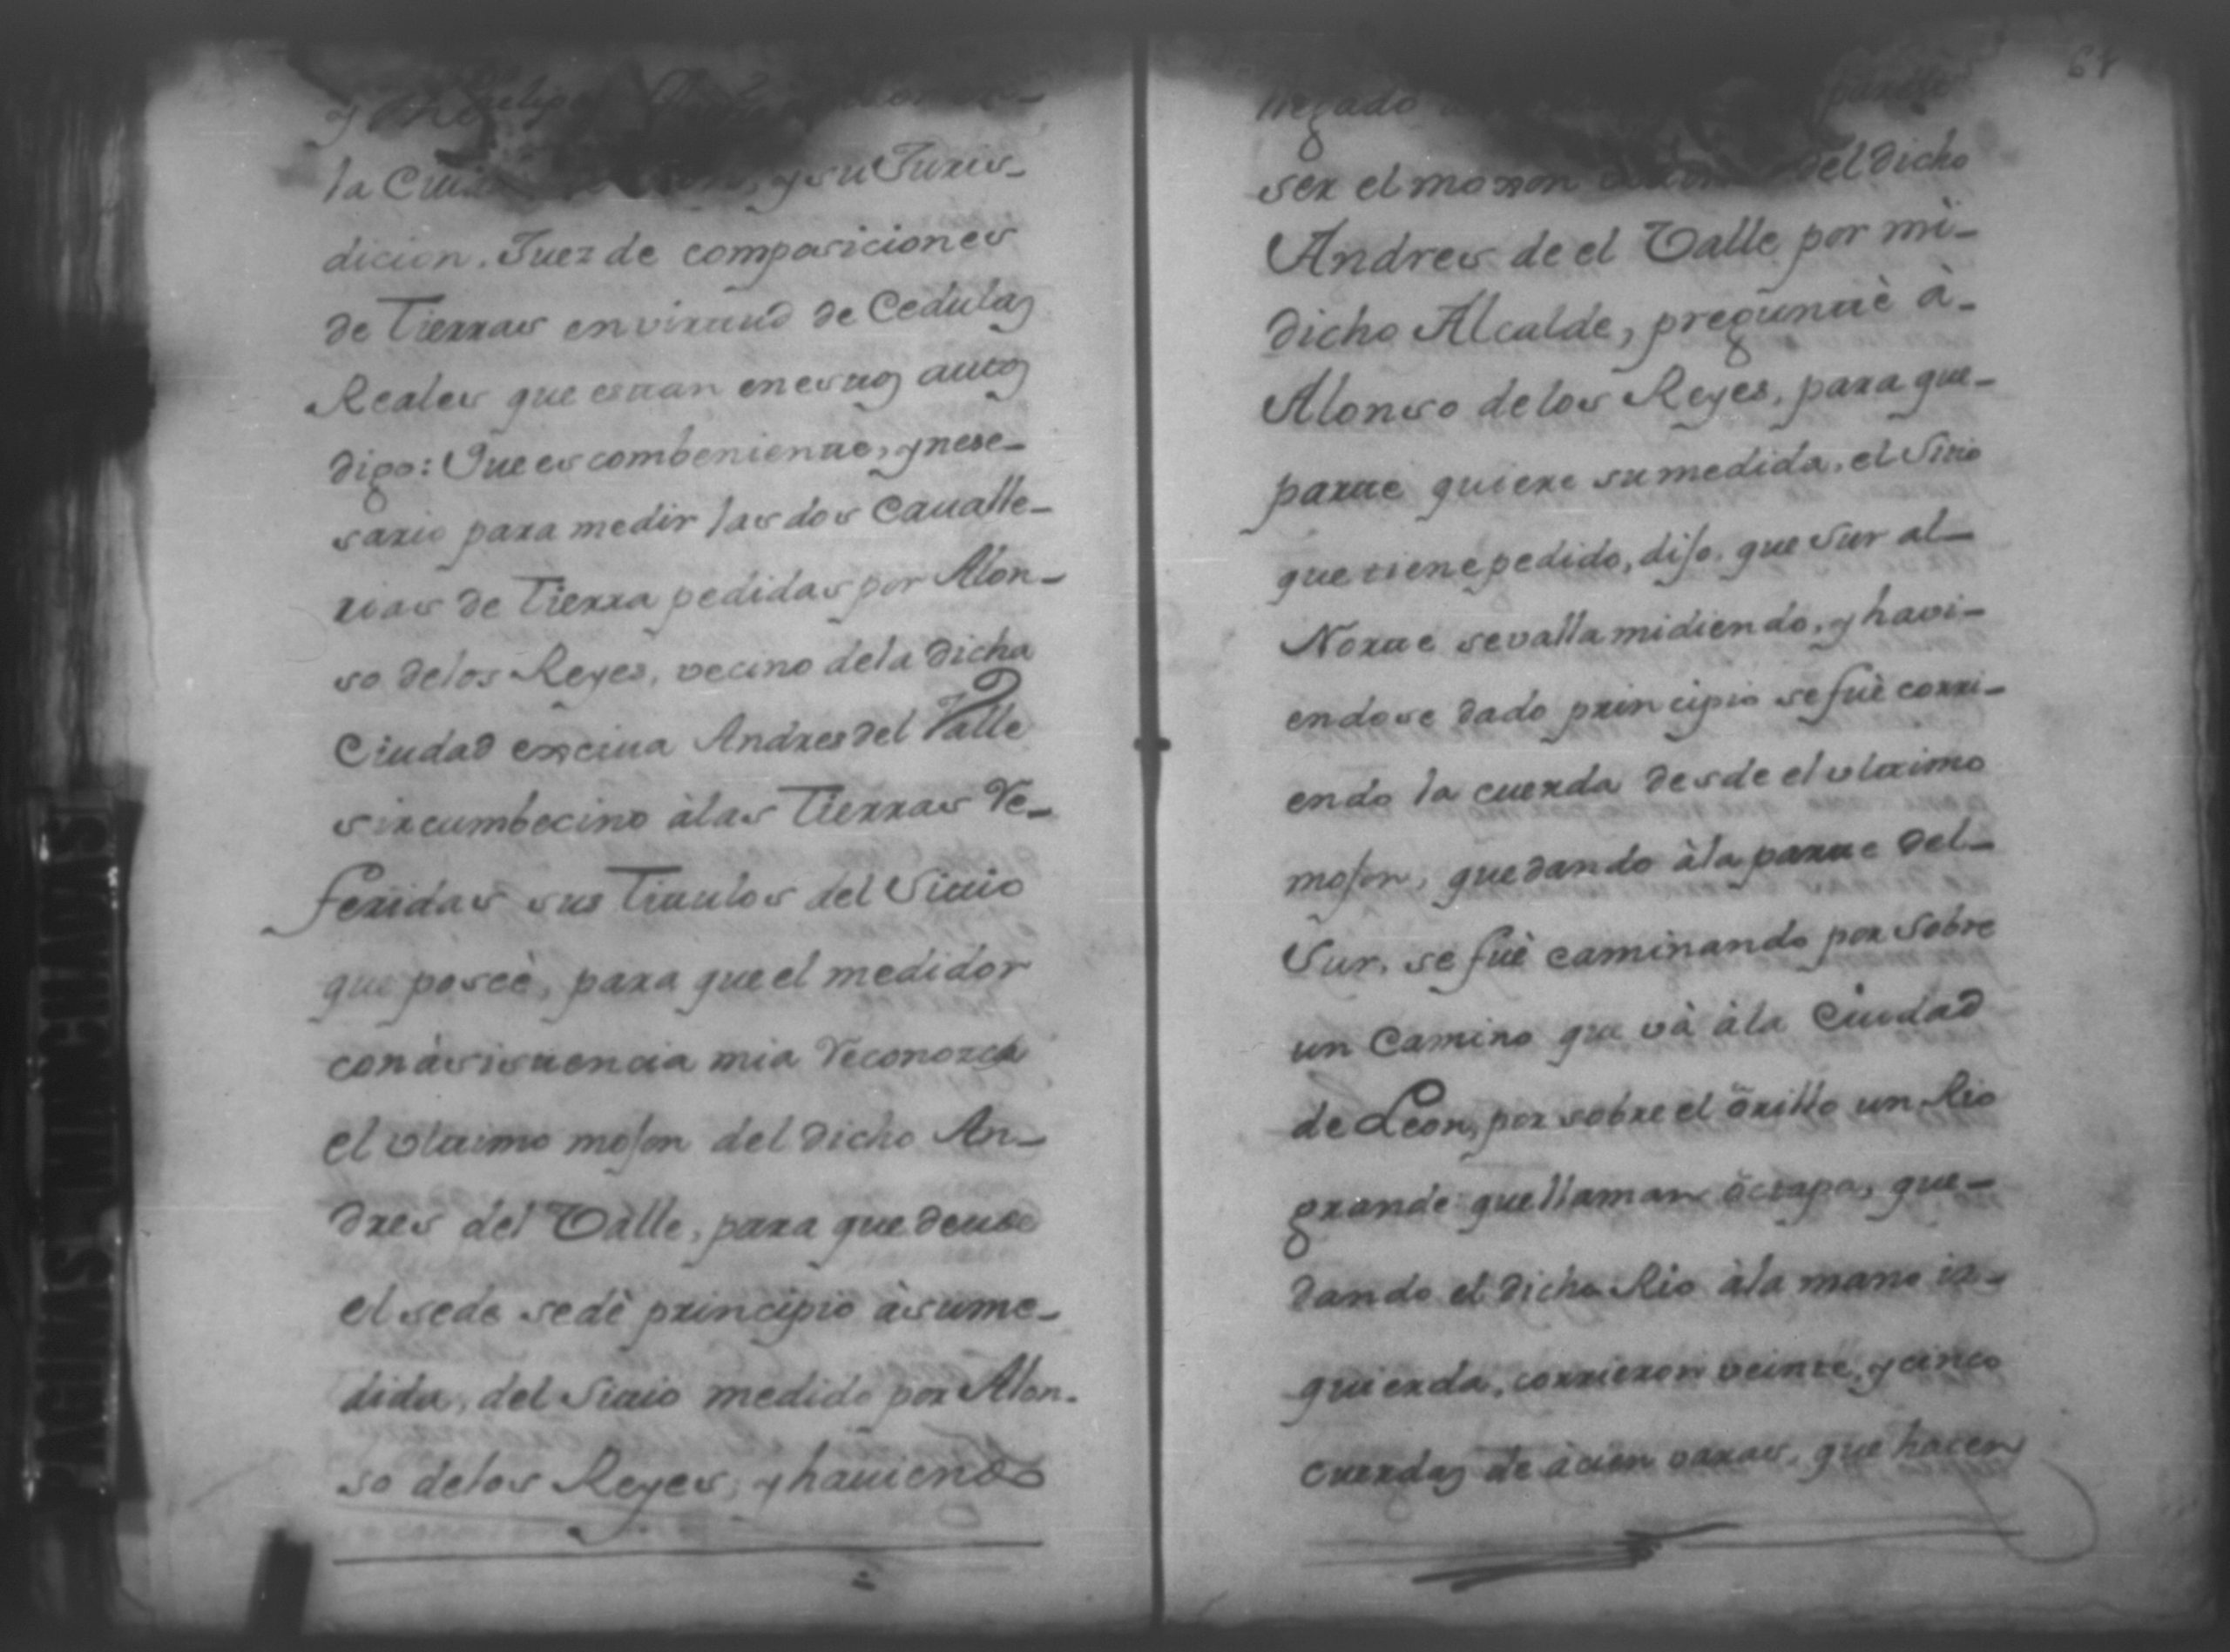 la Ciu y su Juris-
dicion. Juez de composiciones
de Tierras en virtud de Cedulas
Reales que estan en estos autos
digo: Que es combeniente, y nese-
sario para medir las dos Cavalle-
rias de Tierra pedidas por Alon-
so delos Reyes, vecino dela dicha
Ciudad Andres del Valle
sircumbecino àlas Tierras Re-
feridas sus Titulos del Sitio
que poseè, para que el medidor
con àsistencia mia Reconozca
el vltimo mojon del dicho An-
dres del Valle, para que desde
el sede sedè principio àsume-
dida, del Sitio medido por Alon-
so delos Reyes, y haviendo
67
llegado
ser el mojon del dicho
Andres de el Valle por mi-
dicho Alcalde, preguntè à-
Alonso delos Reyes, para que-
parte quiere sumedida, el Sitio
que tiene pedido, dijo. que Sur al-
Norte sevalla midiendo, y havi-
endose dado principio se fuè corri-
endo la cuerda desde el vltimo
mojon, quedando àla parte del-
Sur, se fuè caminando por sobre
un Camino que và àla Ciudad
de Leon, por sobre el òrillo un Rio
grande que llaman que-
dando el dicho Rio àla mano is-
quierda, corrieron veinte, y cinco
cuerdas de àcien varas, que hacen